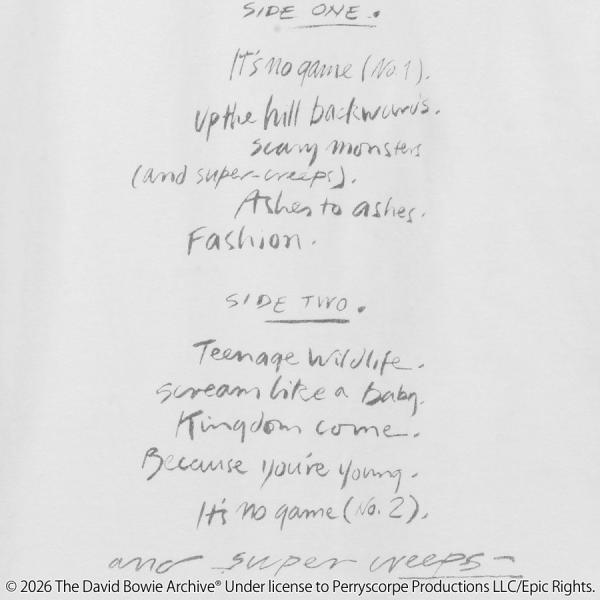 SIDE ONE.
It's no game (No. 1).
up the hill backwards.
scary monsters
(and super-creeps).
Ashes to ashes.
Fashion.
SIDE TWO.
Teenage Wildlife.
scream like a baby.
Kingdom come.
Because you're young.
It's no game (No. 2).
and super creeps-
© 2026 The David Bowie Archive® Under license to Perryscope Productions LLC/Epic Rights.